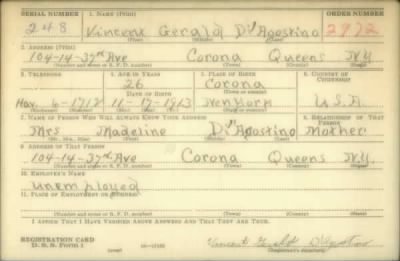 SERIAL NUMBER 1. NAME (Print) ORDER NUMBER
248 Vincent Gerald D'Agostino 2972
(First) (Middle) (Last)
2. ADDRESS (Print)
104-14-37th Ave Corona Queens N.Y.
(Number and street or R. F. D. number) (Town) (County) (State)
3. TELEPHONE 4. AGE IN YEARS 5. PLACE OF BIRTH 6. COUNTRY OF CITIZENSHIP
26 Corona
DATE OF BIRTH (Town or county)
Hav. 6-1712 11-17-1913 New York U.S.A.
7. NAME OF PERSON WHO WILL ALWAYS KNOW YOUR ADDRESS 8. RELATIONSHIP OF THAT PERSON
Mrs Madeline D'Agostino Mother
(Mr., Mrs., Miss) (First) (Middle) (Last)
9. ADDRESS OF THAT PERSON
104-14-37th Ave Corona Queens N.Y.
(Number and street or R. F. D. number) (Town) (County) (State)
10. EMPLOYER'S NAME
Unemployed
11. PLACE OF EMPLOYMENT OR BUSINESS
(Number and street or R. F. D. number) (Town) (County) (State)
I AFFIRM THAT I HAVE VERIFIED ABOVE ANSWERS AND THAT THEY ARE TRUE.
REGISTRATION CARD
D. S. S. Form 1 Vincent Gerald D'Agostino
(Registrant's signature)